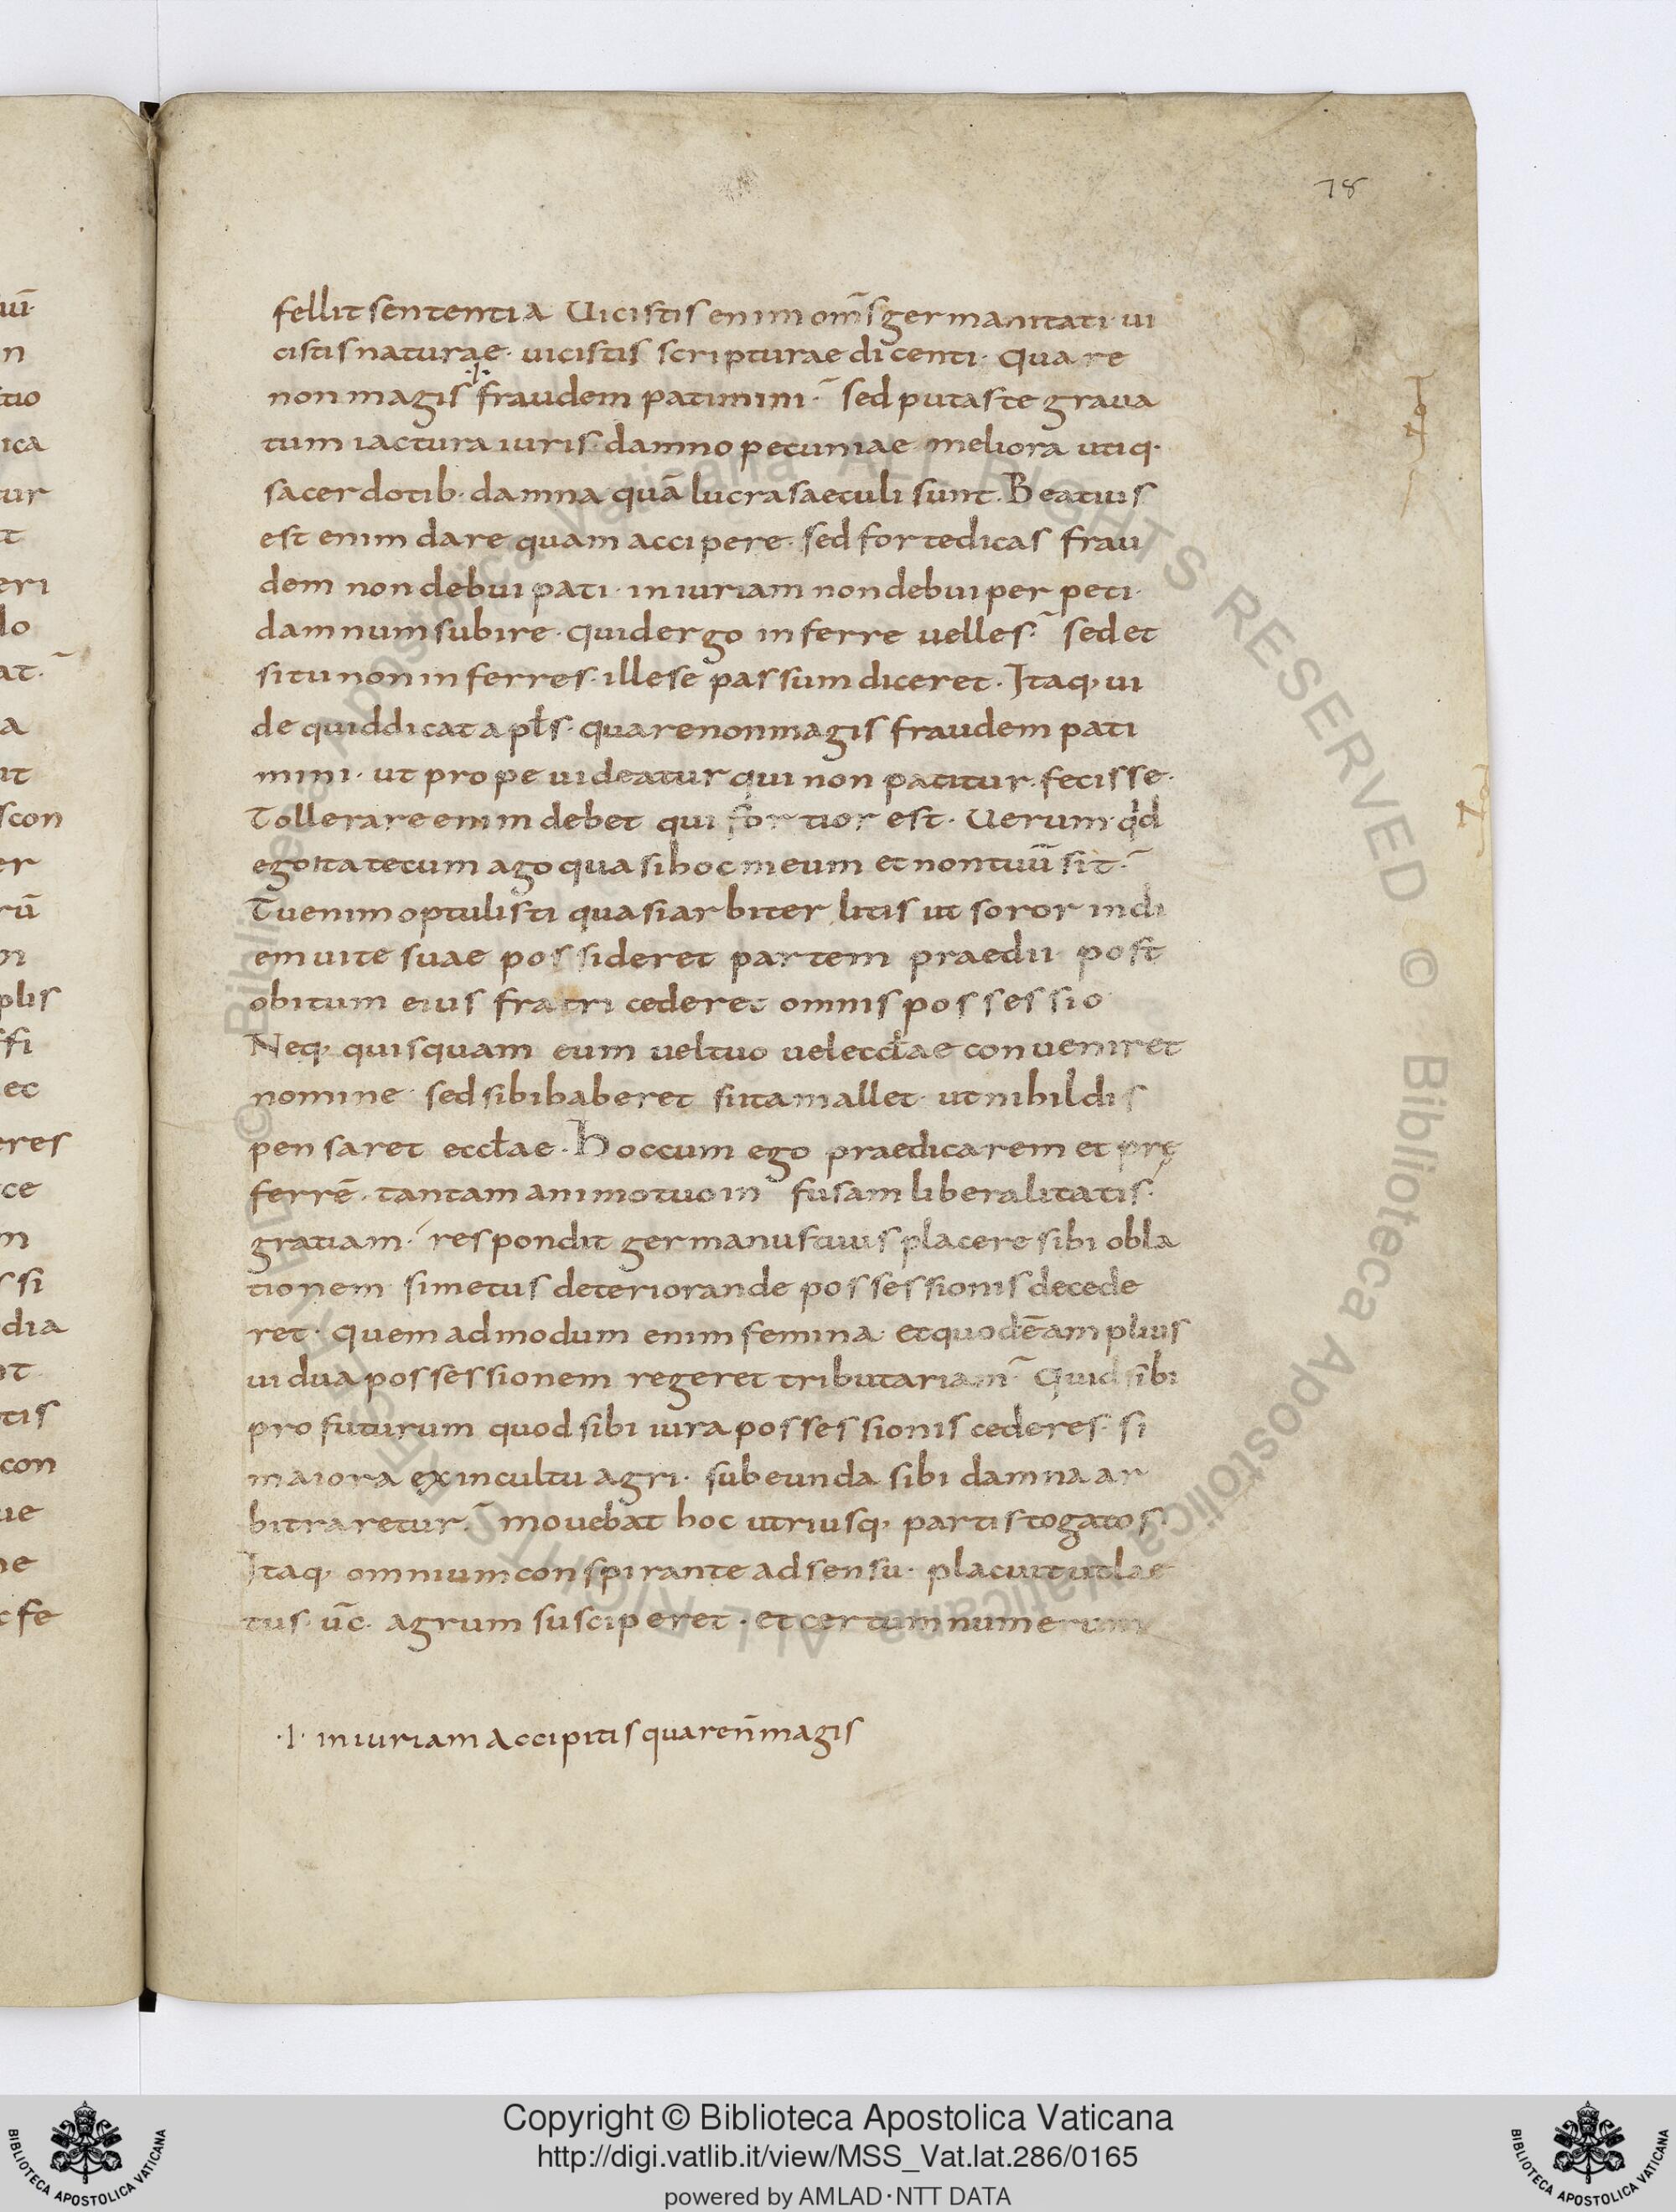 78
fellit sententia Uicistis enim om̄s germanitati· ui
cistis naturae· uicistis scripturae dicenti· Quare
non magis ·/· fraudem patimini·~ sed putas te graua
tum iactura iuris· damno pecuniae· meliora utiq·
sacerdotib· damna quā lucra saeculi sunt· Beatius
est enim dare quam accipere· sed forte dicas frau
dem non debui pati· iniuriam non debui perpeti·
damnum subire· quid ergo inferre uelles·~ sed et
si tu non inferres· ille se passum diceret· Itaq· ui
de quid dicat apl̄s· quare non magis fraudem pati
mini· ut prope uideatur qui non patitur· fecisse·
Tollerare enim debet qui fortior est· Uerum qd̄
ego ita tecum ago quasi hoc meum et non tuū sit·~
Tu enim optulisti quasi arbiter litis ut soror in di
em uite suae possideret partem praedii post
obitum eius fratri cederet omnis possessio
Neq· quisquam eum uel tuo uel eccl̄ae conueniret
nomine· sed sibi haberet si ita mallet· ut nihil dis
pensaret eccl̄ae· Hoc cum ego praedicarem et prę
ferrē· tantam animo tuo in fusam liberalitatis·
gratiam·~ respondit germanus tuus placere sibi obla
tionem si metus deteriorande possessionis decede
ret· quem ad modum enim femina· et quod ē amplius
uidua possessionem regeret tributariam·~ Quid sibi
profuturum quod sibi iura possessionis cederes· si
maiora ex incultu agri· subeunda sibi damna ar
bitraretur·~ mouebat hoc utriusq· partis togatos·
Itaq· omnium conspirante adsensu· placuit ut lae
tus· ūc· agrum susciperet· et certum numerum
·/· iniuriam accipitis quare n̄ magis
uī·
n
tio
ica
tur
t
eri
lo
at·~
a
it
scon
er
rū
n
plis
ffi
ec
eres
ce
m
s si
dia
ot
tis
con
ue
ne
c fe
© Biblioteca Apostolica Vaticana ALL RIGHTS RESERVED
© Biblioteca Apostolica Vaticana ALL RIGHTS RESERVED
BIBLIOTECA APOSTOLICA VATICANA
Copyright © Biblioteca Apostolica Vaticana
http://digi.vatlib.it/view/MSS_Vat.lat.286/0165
powered by AMLAD·NTT DATA
BIBLIOTECA APOSTOLICA VATICANA